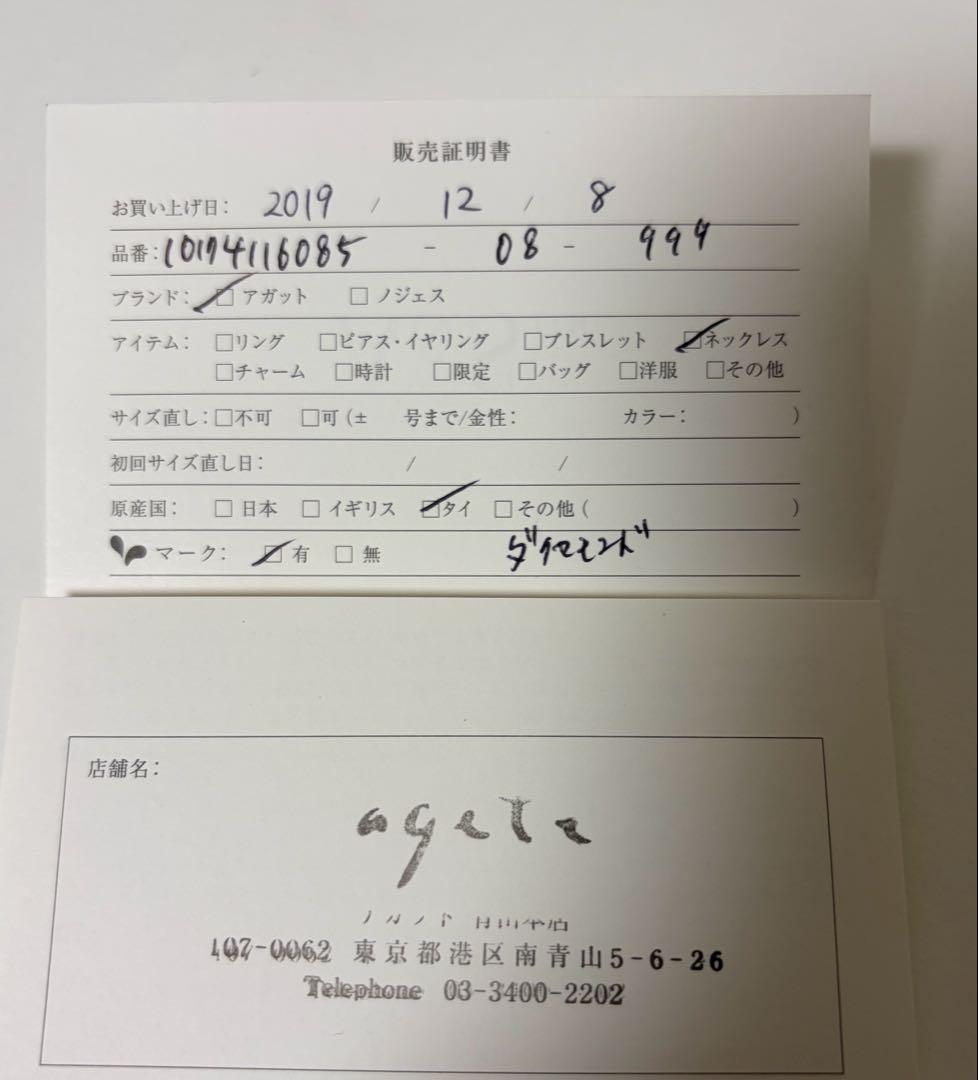 販売証明書
お買い上げ日: 2019 / 12 / 8
品番: 10174116085 - 08 - 999
ブランド: □ アガット □ ノジェス
アイテム: □リング □ピアス・イヤリング □ブレスレット □ネックレス
□チャーム □時計 □限定 □バッグ □洋服 □その他
サイズ直し: □不可 □可 (± 号まで/金性: カラー: )
初回サイズ直し日: / /
原産国: □ 日本 □ イギリス □タイ □その他 ( )
マーク: □ 有 □ 無 ダイヤモンド
店舗名:
agete
107-0062 東京都港区南青山5-6-26
Telephone 03-3400-2202